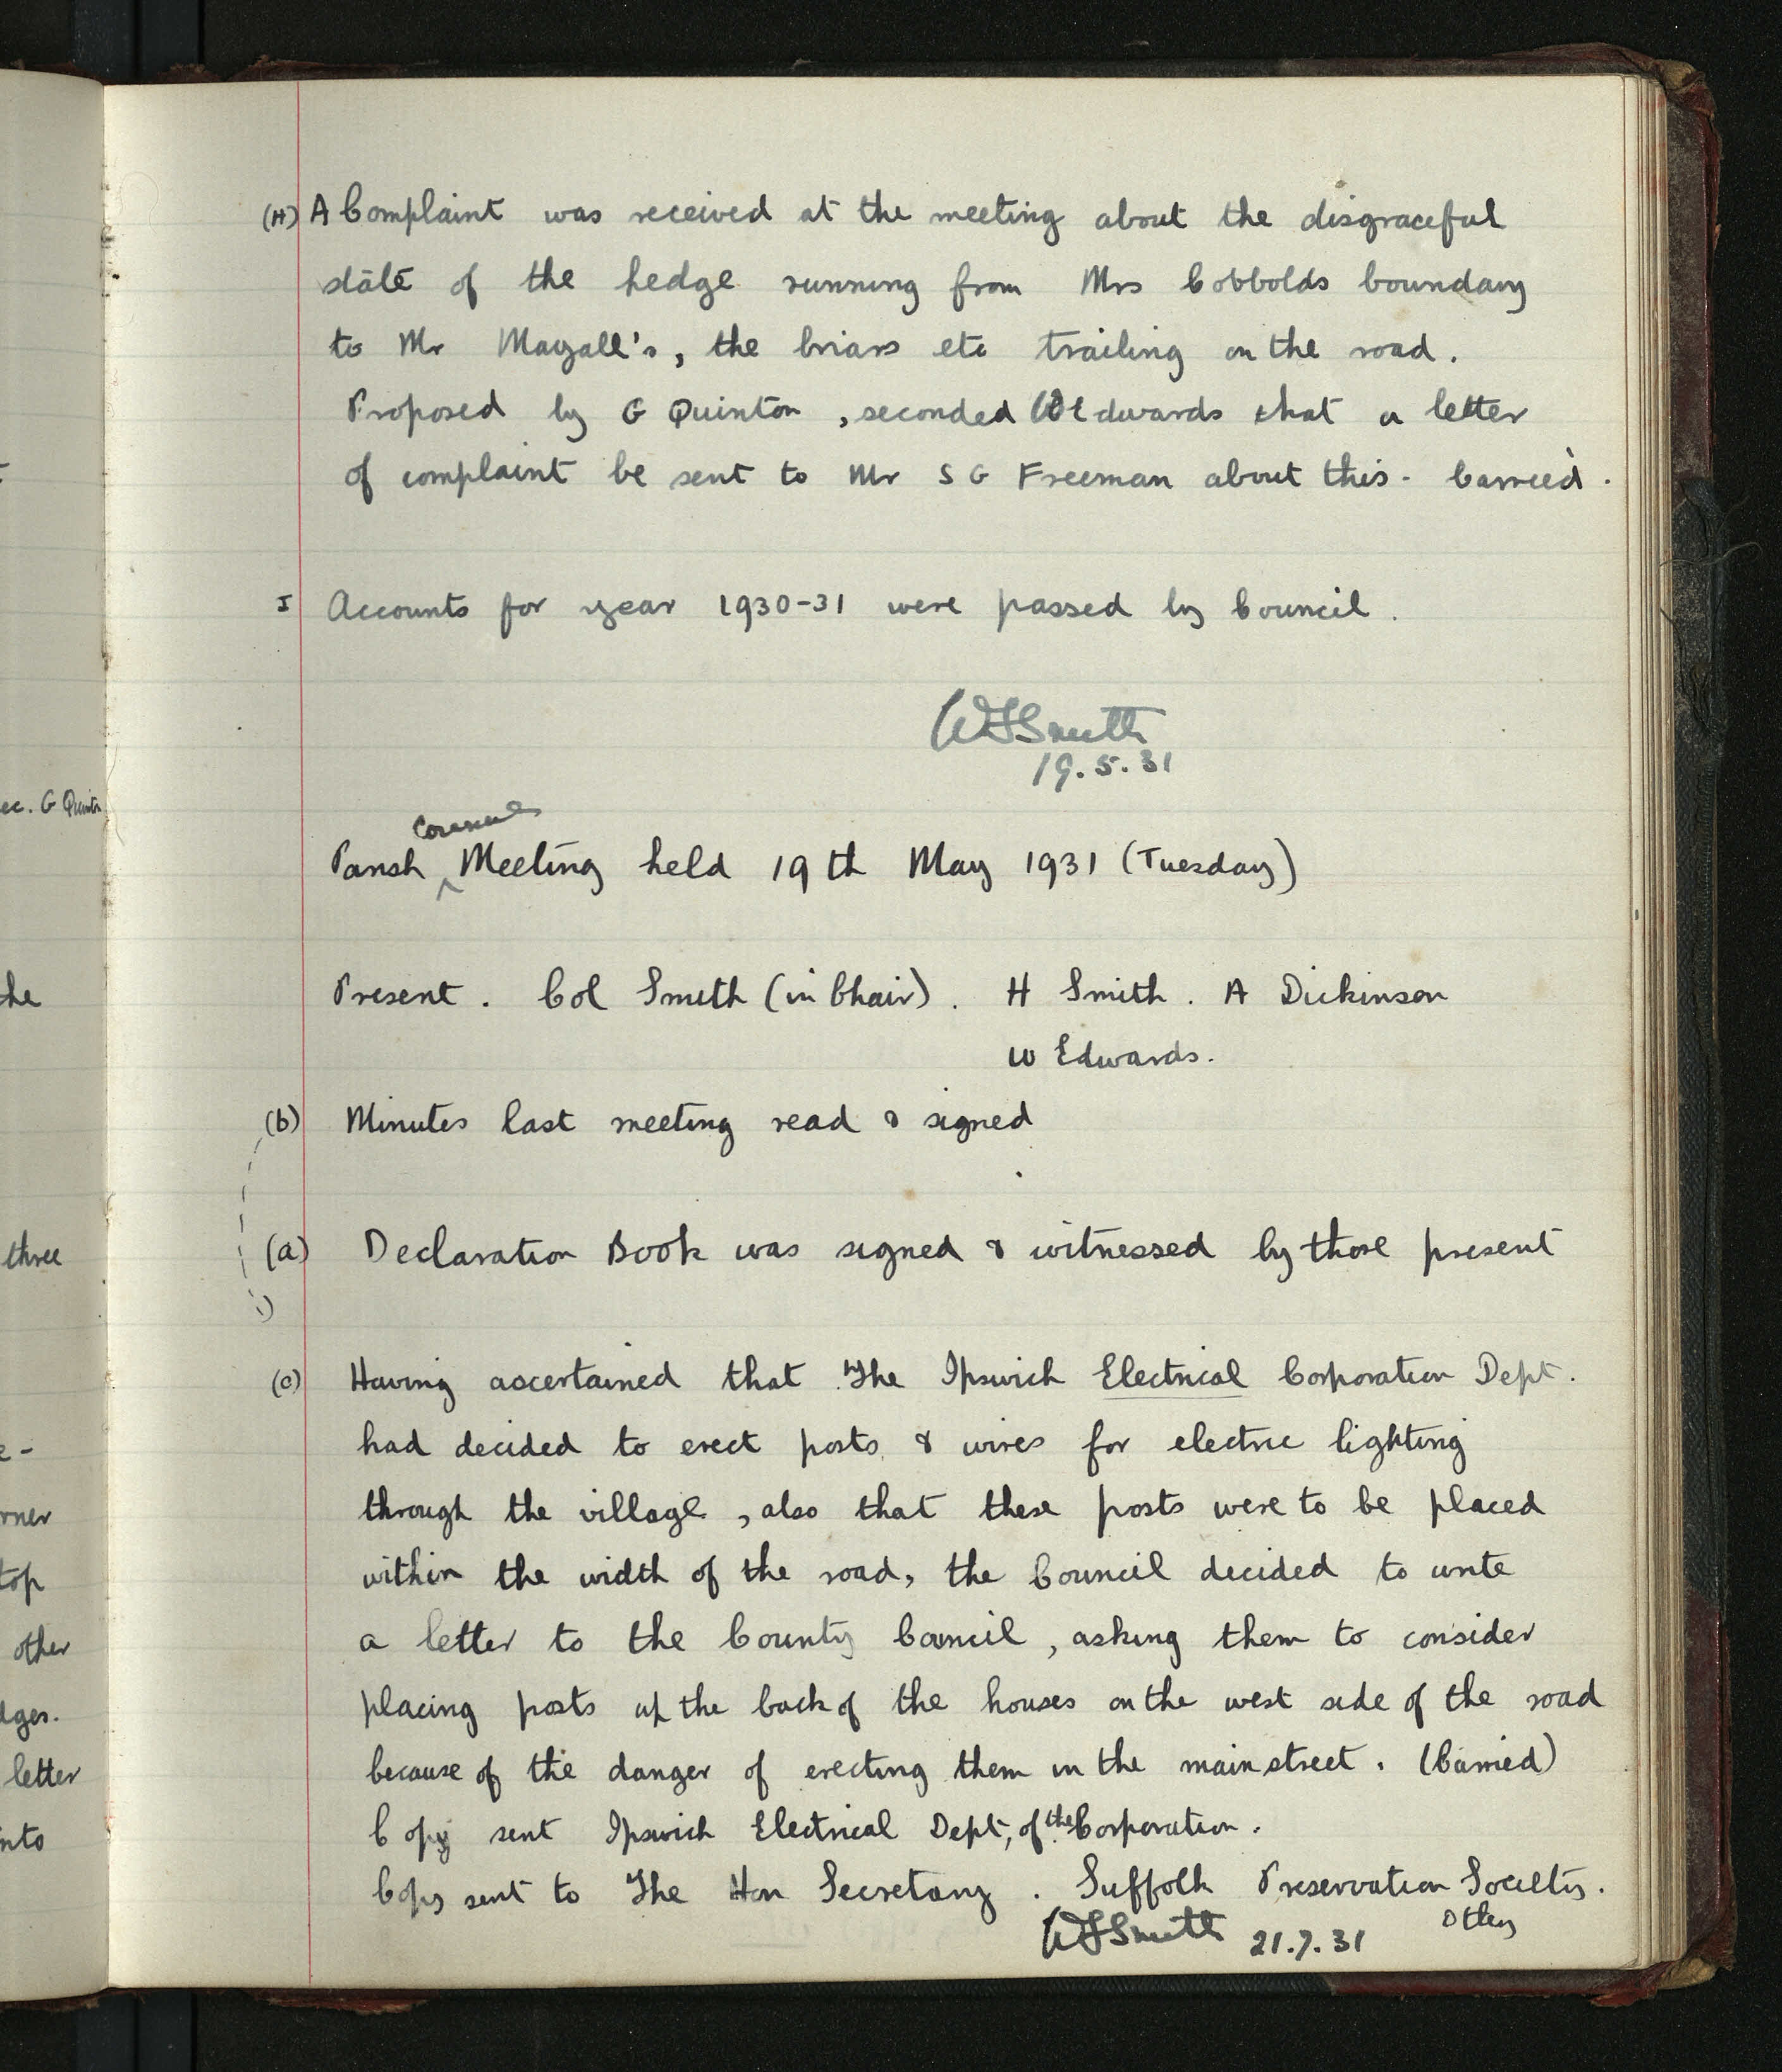 (H) A Complaint was received at the meeting about the disgraceful
state of the hedge running from Mrs Cobbolds boundary
to Mr Mayall's, the briars etc trailing on the road.
Proposed by G Quinton, seconded W Edwards that a letter
of complaint be sent to Mr S G Freeman about this. Carried.
I Accounts for year 1930-31 were passed by Council.
WFSmith
19.5.31
Council
Parish ^ Meeting held 19th May 1931 (Tuesday)
Present. Col Smith (in Chair). H Smith. A Dickinson
W Edwards.
(b) Minutes last meeting read & signed
(a) Declaration Book was signed & witnessed by those present
(c) Having ascertained that The Ipswich Electrical Corporation Dept.
had decided to erect posts & wires for electric lighting
through the village, also that these posts were to be placed
within the width of the road, the Council decided to write
a letter to the County Council, asking them to consider
placing posts up the back of the houses on the west side of the road
because of the danger of erecting them in the main street. (Carried)
Copy sent Ipswich Electrical Dept, of the Corporation.
Copy sent to The Hon Secretary. Suffolk Preservation Society.
Otley
WFSmith 21.7.31
ec. G Quinton
the
three
e-
rner
top
other
dges.
letter
into